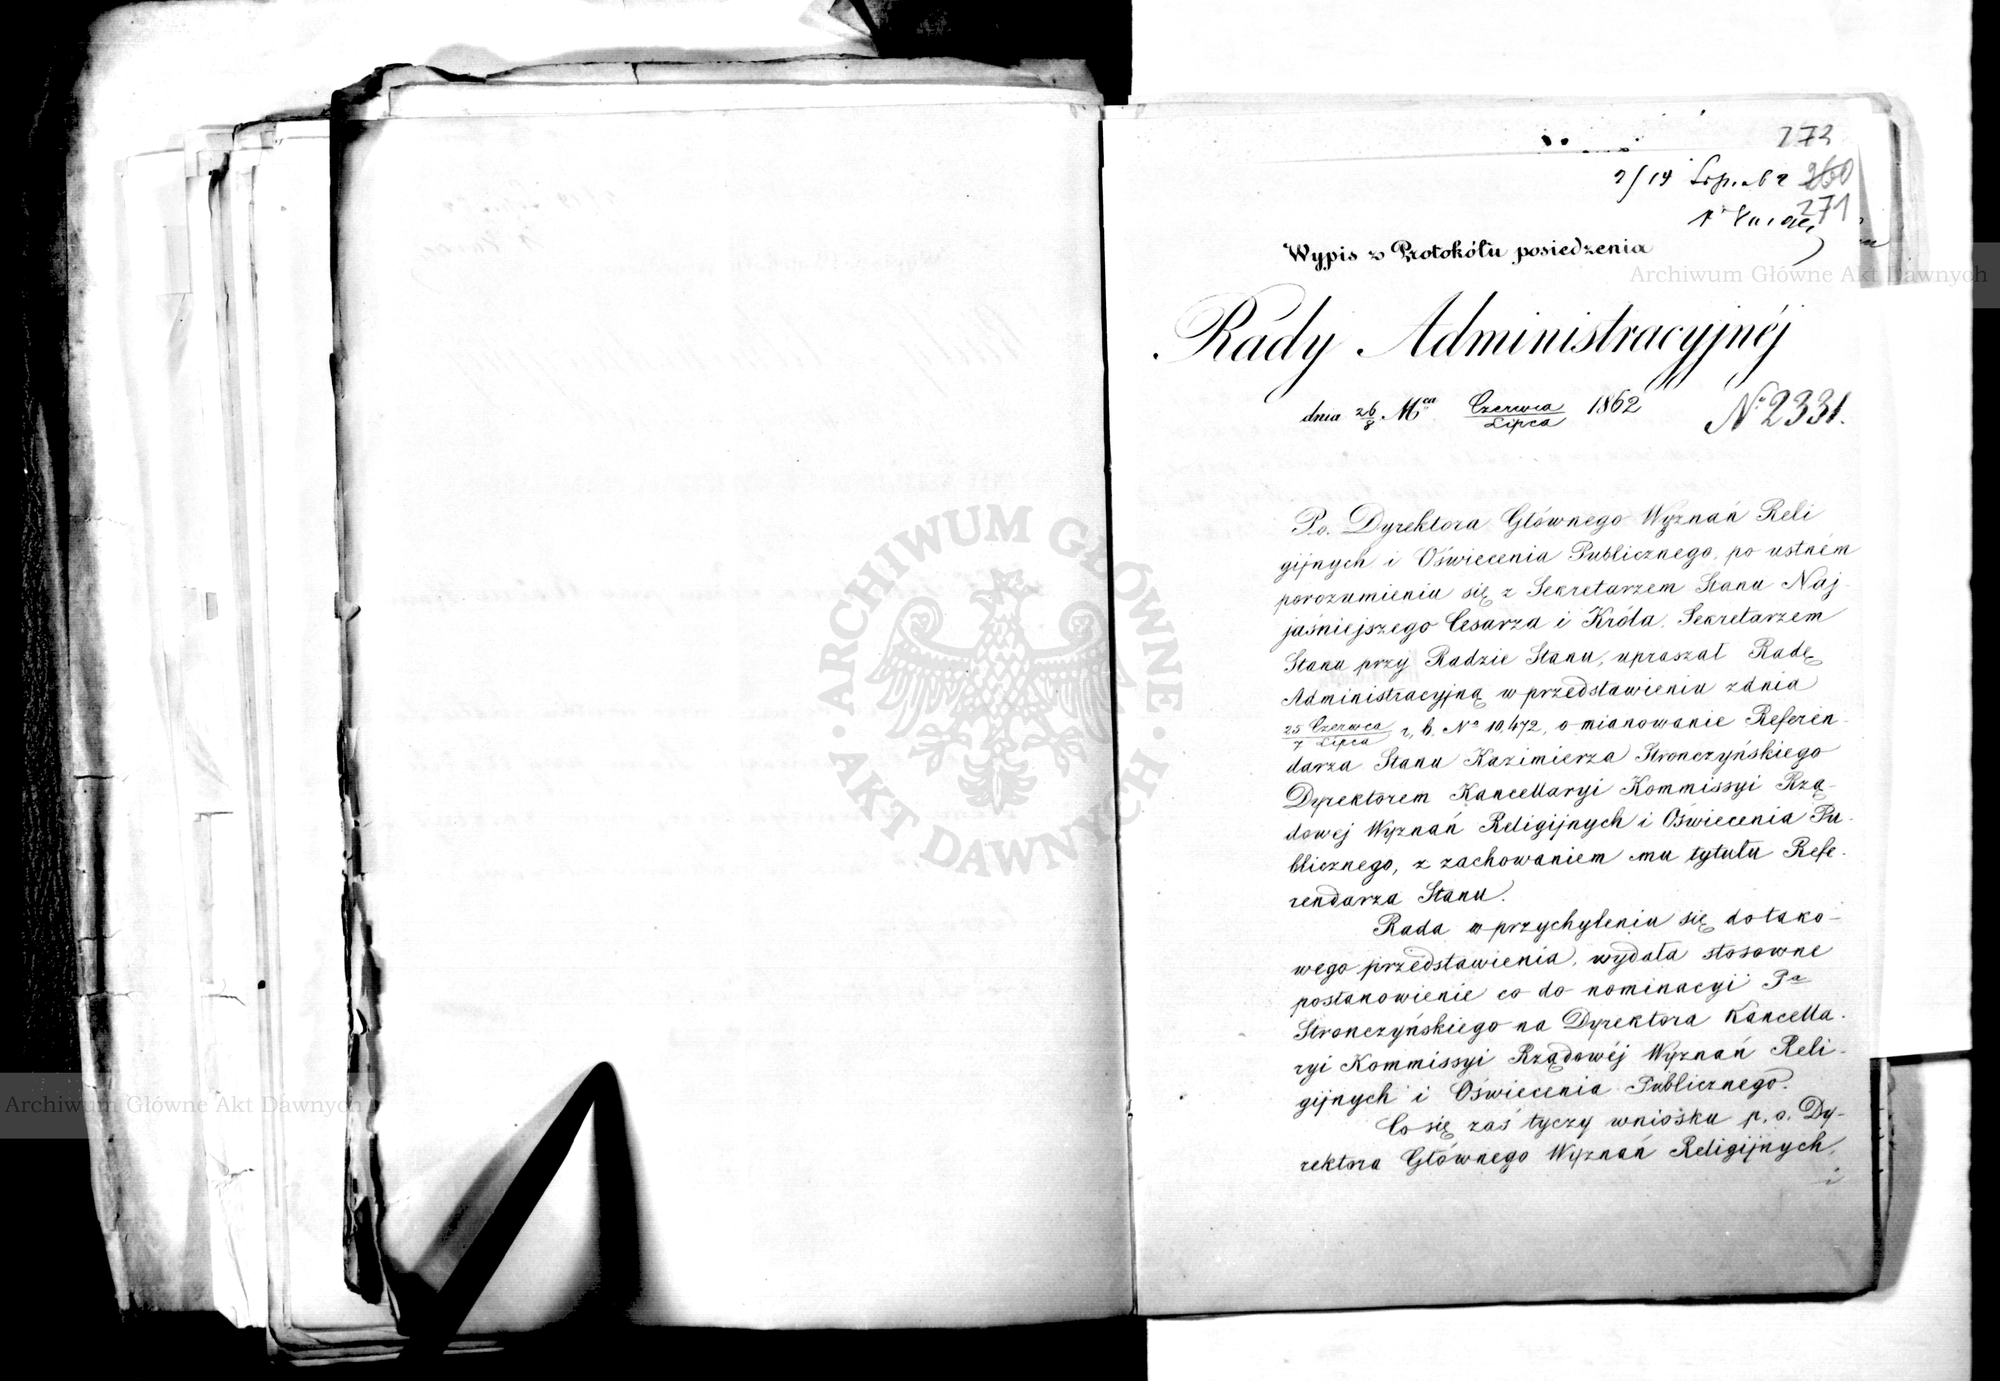 273
260
271
Wypis z Protokółu posiedzenia
Rady Administracyjnéj
dnia 26/8 Mca Czerwca/Lipca 1862 No 2331.
P.o. Dyrektora Głównego Wyznań Reli
gijnych i Oświecenia Publicznego, po ustném
porozumieniu się z Sekretarzem Stanu Naj-
jaśniejszego Cesarza i Króla, Sekretarzem
Stanu przy Radzie Stanu, upraszał Radę
Administracyjną w przedstawieniu z dnia
25 Czerwca/7 Lipca r, b. No 10,472, o mianowanie Referen-
darza Stanu Kazimierza Stronczyńskiego
Dyrektorem Kancellaryi Kommissyi Rzą-
dowej Wyznań Religijnych i Oświecenia Pu-
blicznego, z zachowaniem mu tytułu Refe-
rendarza Stanu.
Rada w przychyleniu się do tako-
wego przedstawienia, wydała stosowne
postanowienie co do nominacyi Pa
Stronczyńskiego na Dyrektora Kancella-
ryi Kommissyi Rządowéj Wyznań Reli-
gijnych i Oświecenia Publicznego.
Co się zaś tyczy wniosku p. o. Dy-
rektora Głównego Wyznań Religijnych,
i
ARCHIWUM GŁÓWNE AKT DAWNYCH
Archiwum Główne Akt Dawnych
Archiwum Główne Akt Dawnych